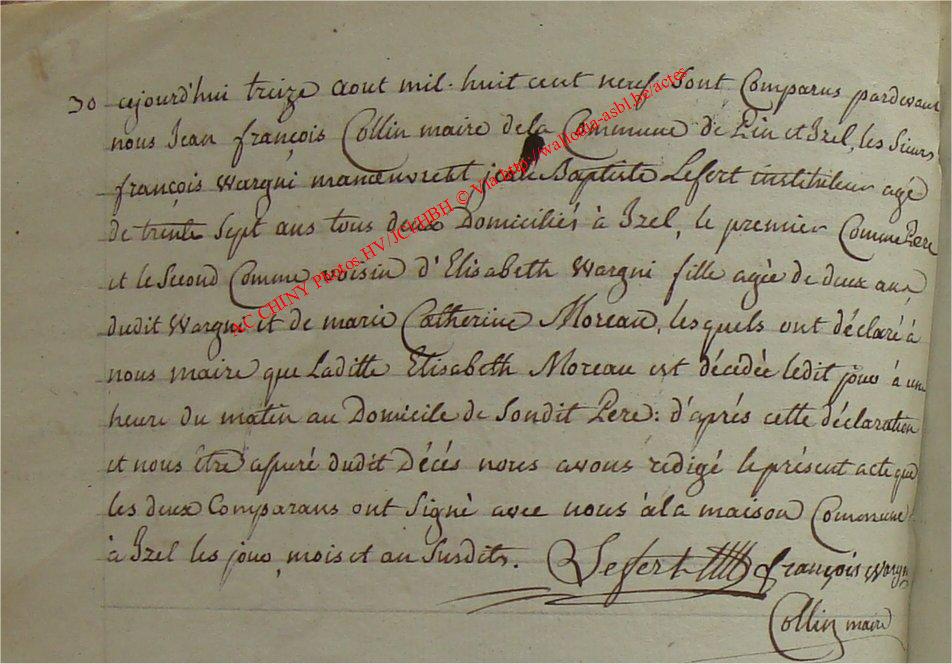 30 cejourd'hui treize aout mil-huit cent neuf sont Comparus pardevant
nous Jean françois Collin maire de la Commune de Pin et Izel, les sieurs
françois Wargni manœuvre et jean Baptiste Lefert instituteur agé
de trente sept ans tous deux Domiciliés à Izel, le premier Comme Pere
et le second Comme voisin d'Elisabeth Wargni fille agée de deux ans
dudit Wargni et de marie Catherine Moreau, lesquels ont déclaré à
nous maire que Laditte Elisabeth Moreau est décédée ledit jour à une
heure du matin au Domicile de sondit Pere : d'aprés cette déclaration
et nous être assuré dudit Décés nous avons redigé le présent acte que
les deux Comparans ont signé avec nous à la maison Commune
à Izel les jour, mois et an susdits. Lefert françois Wargni
Collin maire
AC CHINY Photos HV/JCVHBH © Via http://wallonia-asbl.be/actes